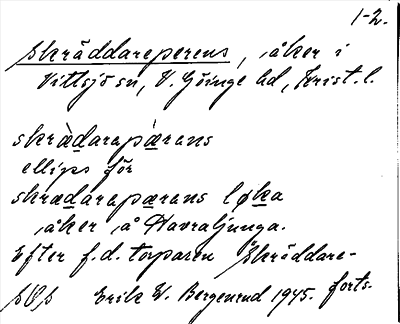 1-2.
Skräddareperens, åker i
Vittsjö sn, V. Göinge hd, Krist. l.
skræ̀darapæ̀rans
ellips för
skrædarapærans løka
åker å Havraljunga.
Efter f.d. torparen Skräddare-
forts.
SOS Erik W. Bergenrud 1945.